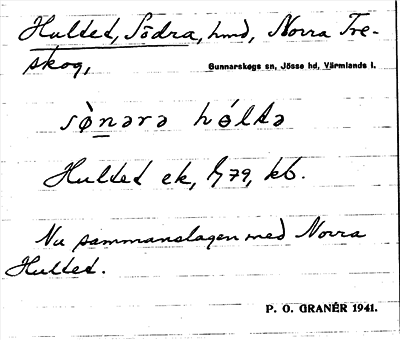 Hultet, Södra, hmd, Norra Tre-
skog,
Gunnarskogs sn, Jösse hd, Värmlands l.
sònara hólta
Hultet ek, 1779, kb.
Nu sammanslagen med Norra
Hultet.
P. O. GRANÉR 1941.